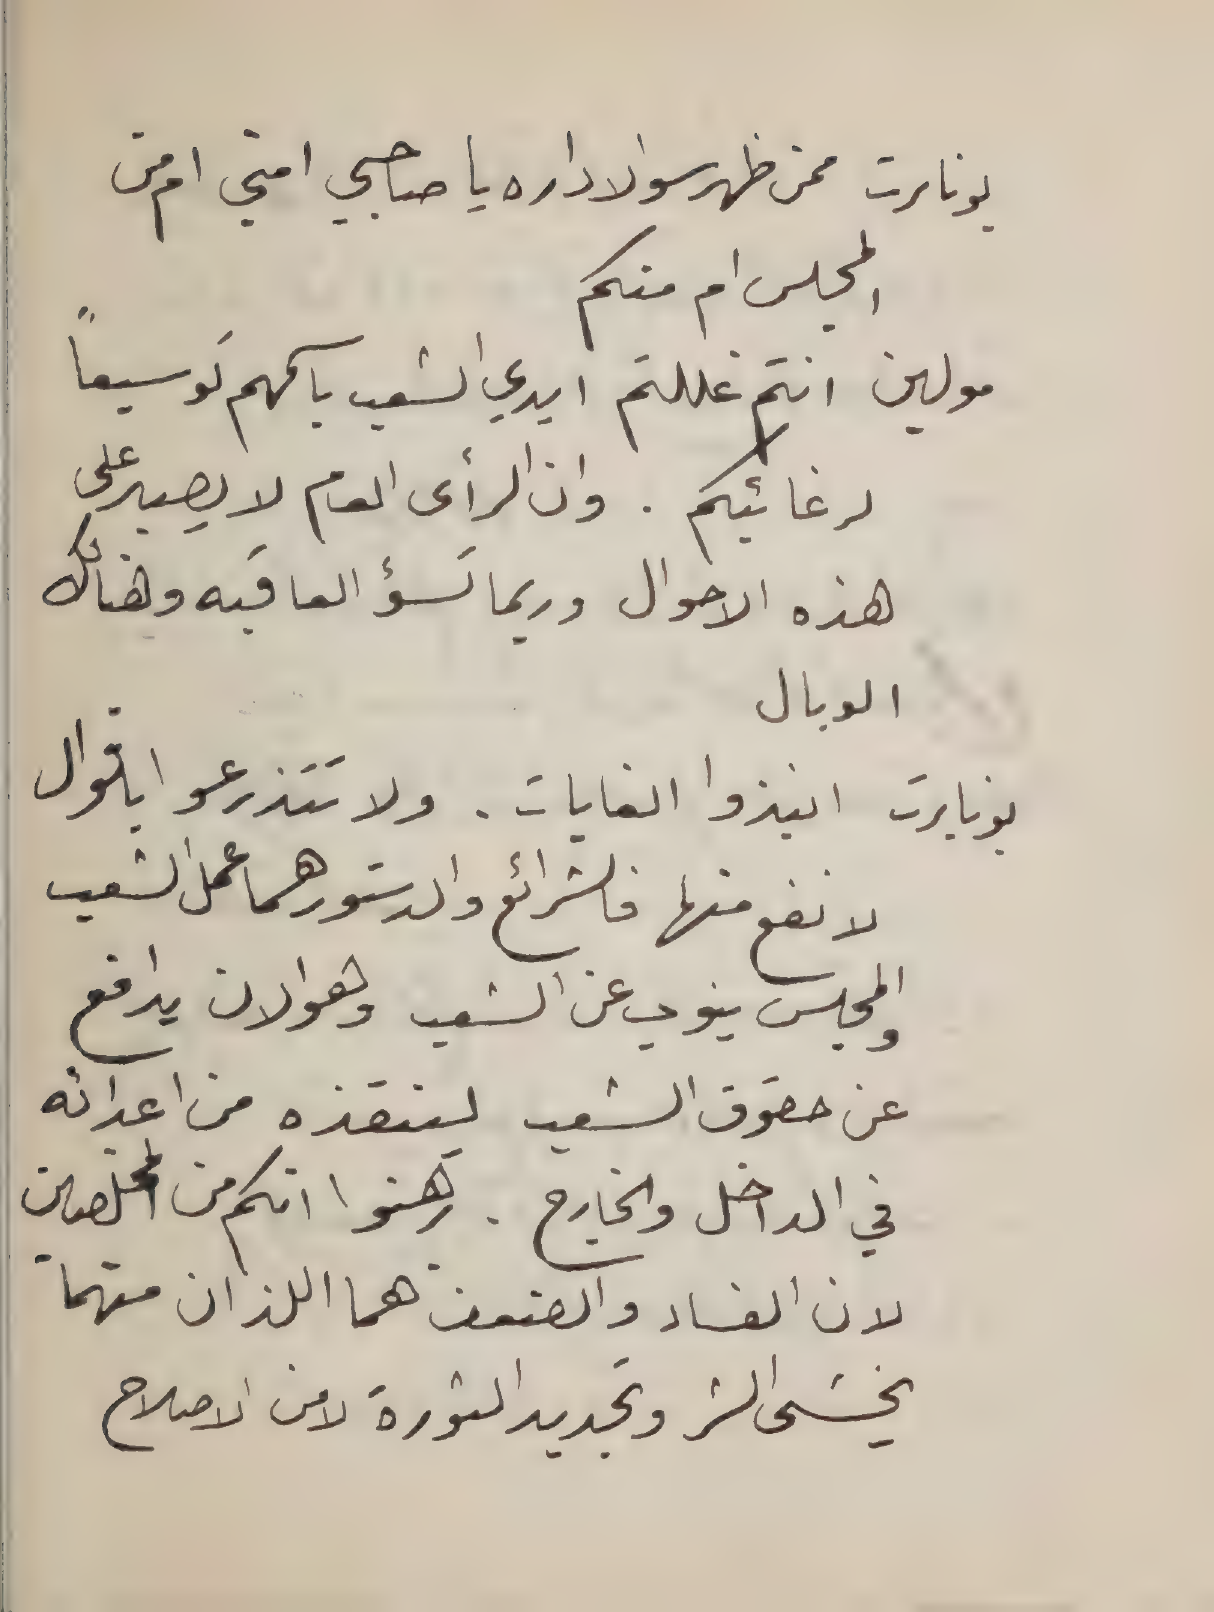 بونابرت ممن ظهر سوالاداره يا صاحبي امني ام من
المجلس ام منكم
مولين انتم غللتم ايدي الشعب باكمهم توسيعاً
لرغائبكم . وان الرأى العام لا يصبر على
هذه الاحوال وربما تسؤ العاقبه وهناك
الوبال
بونابرت انبذوا الغايات . ولا تتذرعوا باقوال
لا نفع منها فالشرائع والدستور هما عمل الشعب
والمجلس ينوب عن الشعب وهو الان يدافع
عن حقوق الشعب لينقذه من اعدائه
في الداخل والخارج . برهنوا انكم من المخلصين
لان الفساد والضعف هما اللذان منهما
يخشى الشر وتجديد الثورة لا من الاصلاح